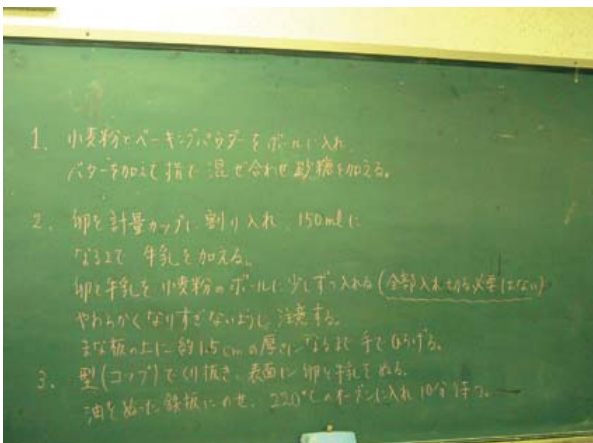 1. 小麦粉とベーキングパウダーをボールに入れ
バターを加えて指で混ぜ合わせ砂糖を加える。
2. 卵を計量カップに割り入れ 150mlに
なるまで 牛乳を加える。
卵と牛乳を小麦粉のボールに少しずつ入れる(全部入れ切る必要はない)
やわらかくなりすぎないように注意する。
まな板の上に約1.5cmの厚さになるまで手で広げる。
3. 型(コップ)でくり抜き、表面に卵と牛乳をぬる。
油をぬった鉄板にのせ、220°Cのオーブンに入れ10分待つ。